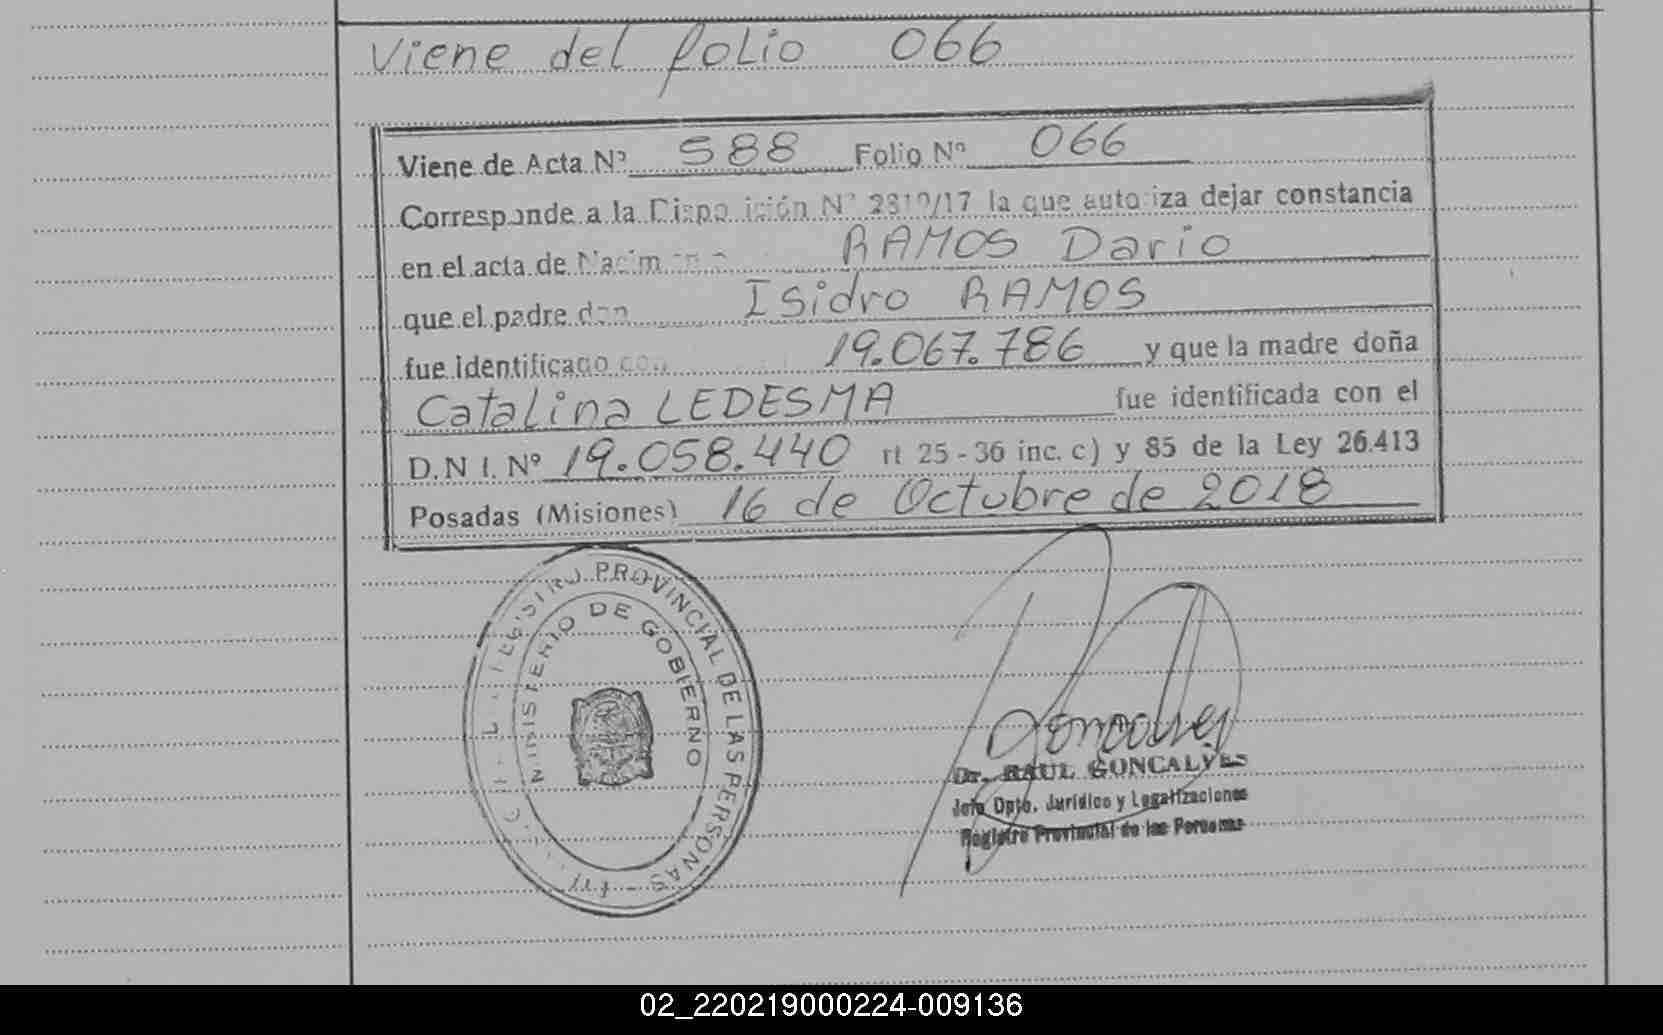 Viene del folio 066
Viene de Acta Nº 588 Folio Nº 066
Corresponde a la Disposición Nº 2310/17 la que autoriza dejar constancia
en el acta de Nacim RAMOS Dario
que el padre don Isidro RAMOS
fue identificado con 19.067.786 y que la madre doña
Catalina LEDESMA fue identificada con el
D.N.I. Nº 19.058.440 rt 25-36 inc. c) y 85 de la Ley 26.413
Posadas (Misiones) 16 de Octubre de 2018
REGISTRO PROVINCIAL DE LAS PERSONAS
MINISTERIO DE GOBIERNO
Goncalves
Dr. RAUL GONCALVES
Jefe Dpto. Jurídico y Legalizaciones
Registro Provincial de las Personas
02_220219000224-009136